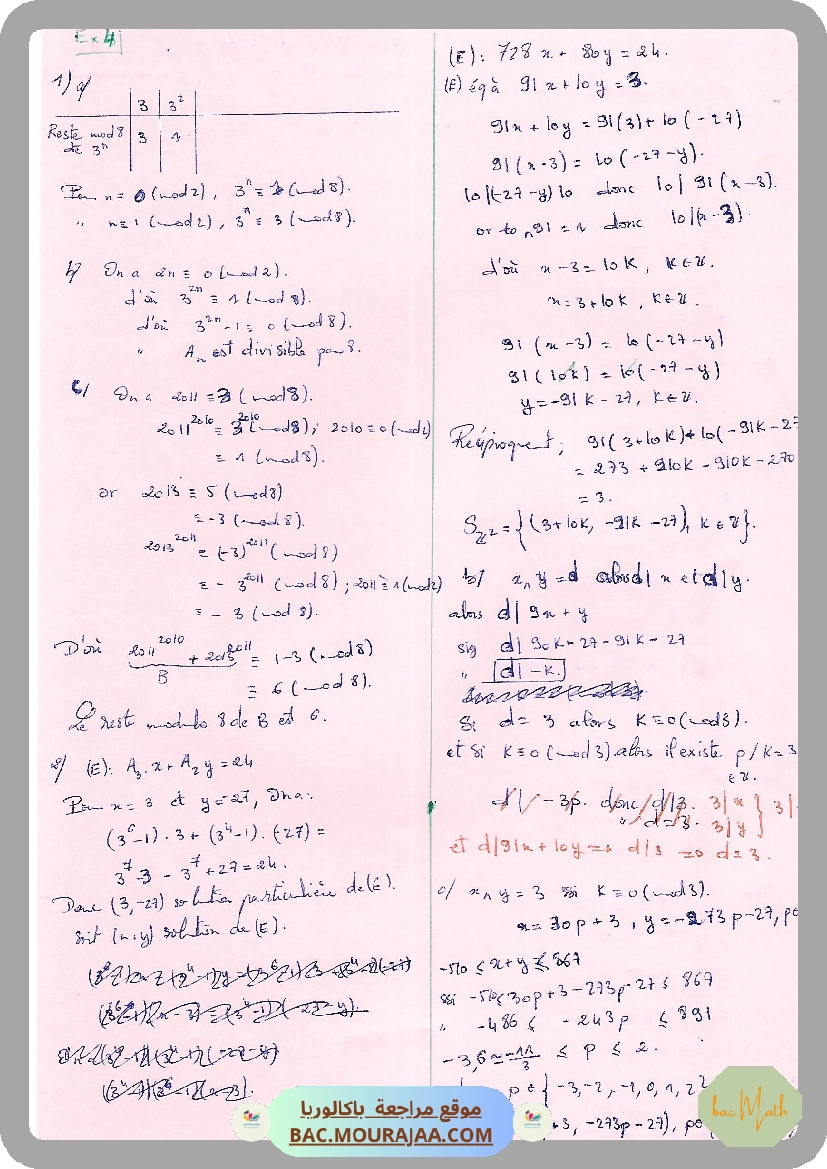 Ex 4
1) a)
3 3²
Reste mod 8 3 1
de 3ⁿ
Pour n ≡ 0 (mod 2), 3ⁿ ≡ 1 (mod 8).
" n ≡ 1 (mod 2), 3ⁿ ≡ 3 (mod 8).
b) On a 2n ≡ 0 (mod 2).
d'où 3²ⁿ ≡ 1 (mod 8).
d'où 3²ⁿ - 1 ≡ 0 (mod 8).
" Aₙ est divisible par 8.
c/ On a 2011 ≡ 3 (mod 8).
2011²⁰¹⁰ ≡ 3²⁰¹⁰ (mod 8); 2010 ≡ 0 (mod 2)
≡ 1 (mod 8).
or 2013 ≡ 5 (mod 8)
≡ -3 (mod 8).
2013²⁰¹¹ ≡ (-3)²⁰¹¹ (mod 8)
≡ - 3²⁰¹¹ (mod 8); 2011 ≡ 1 (mod 2)
≡ - 3 (mod 8).
D'où 2011²⁰¹⁰ + 2013²⁰¹¹ ≡ 1-3 (mod 8)
B
≡ 6 (mod 8).
Le rest modulo 8 de B est 6.
2/ (E): A₃.x + A₂ y = 24
Pour x = 3 et y = -27, On a:
(3⁶-1) . 3 + (3⁴-1) . (-27) =
3⁷ - 3 - 3⁷ + 27 = 24.
Donc (3, -27) solution particulière de (E).
Soit (x,y) solution de (E).
(E): 728 x + 80 y = 24.
(E) éq à 91 x + 10 y = 3.
91x + 10y = 91(3) + 10(-27)
91(x-3) = 10(-27-y).
10|(-27-y)10 donc 10| 91(x-3).
or 10 ∧ 91 = 1 donc 10|(x-3).
d'où x-3 = 10K, K∈ℤ.
x = 3+10K, K∈ℤ.
91 (x-3) = 10(-27-y)
91 (10K) = 10(-27-y)
y = -91K - 27, K∈ℤ.
Réciproquent; 91(3+10K)+10(-91K-27
= 273 + 910K - 910K - 270
= 3.
S_ℤ² = {(3+10K, -91K-27), K∈ℤ}.
b/ x ∧ y = d alors d | x et d | y.
alors d | 9x + y
sig d | 90K + 27 - 91K - 27
" d | -K.
Si d = 3 alors K ≡ 0 (mod 3).
et si K ≡ 0 (mod 3) alors il existe p / K = 3
∈ ℤ.
d | -3p. donc d | 3. 3 | x } 3 |
" d = 3. 3 | y
et d | 91x + 10y => d | 3 => d = 3.
c/ x ∧ y = 3 ssi K ≡ 0 (mod 3).
x = 30p + 3, y = -273p - 27, p∈
-510 ≤ x+y ≤ 867
ssi -510 ≤ 30p + 3 - 273p - 27 ≤ 867
" -486 ≤ -243p ≤ 891
-3,6 ≃ -11/3 ≤ p ≤ 2.
p ∈ {-3, -2, -1, 0, 1, 2}
+3, -273p-27), p∈
موقع مراجعة باكالوريا
BAC.MOURAJAA.COM
bac Math